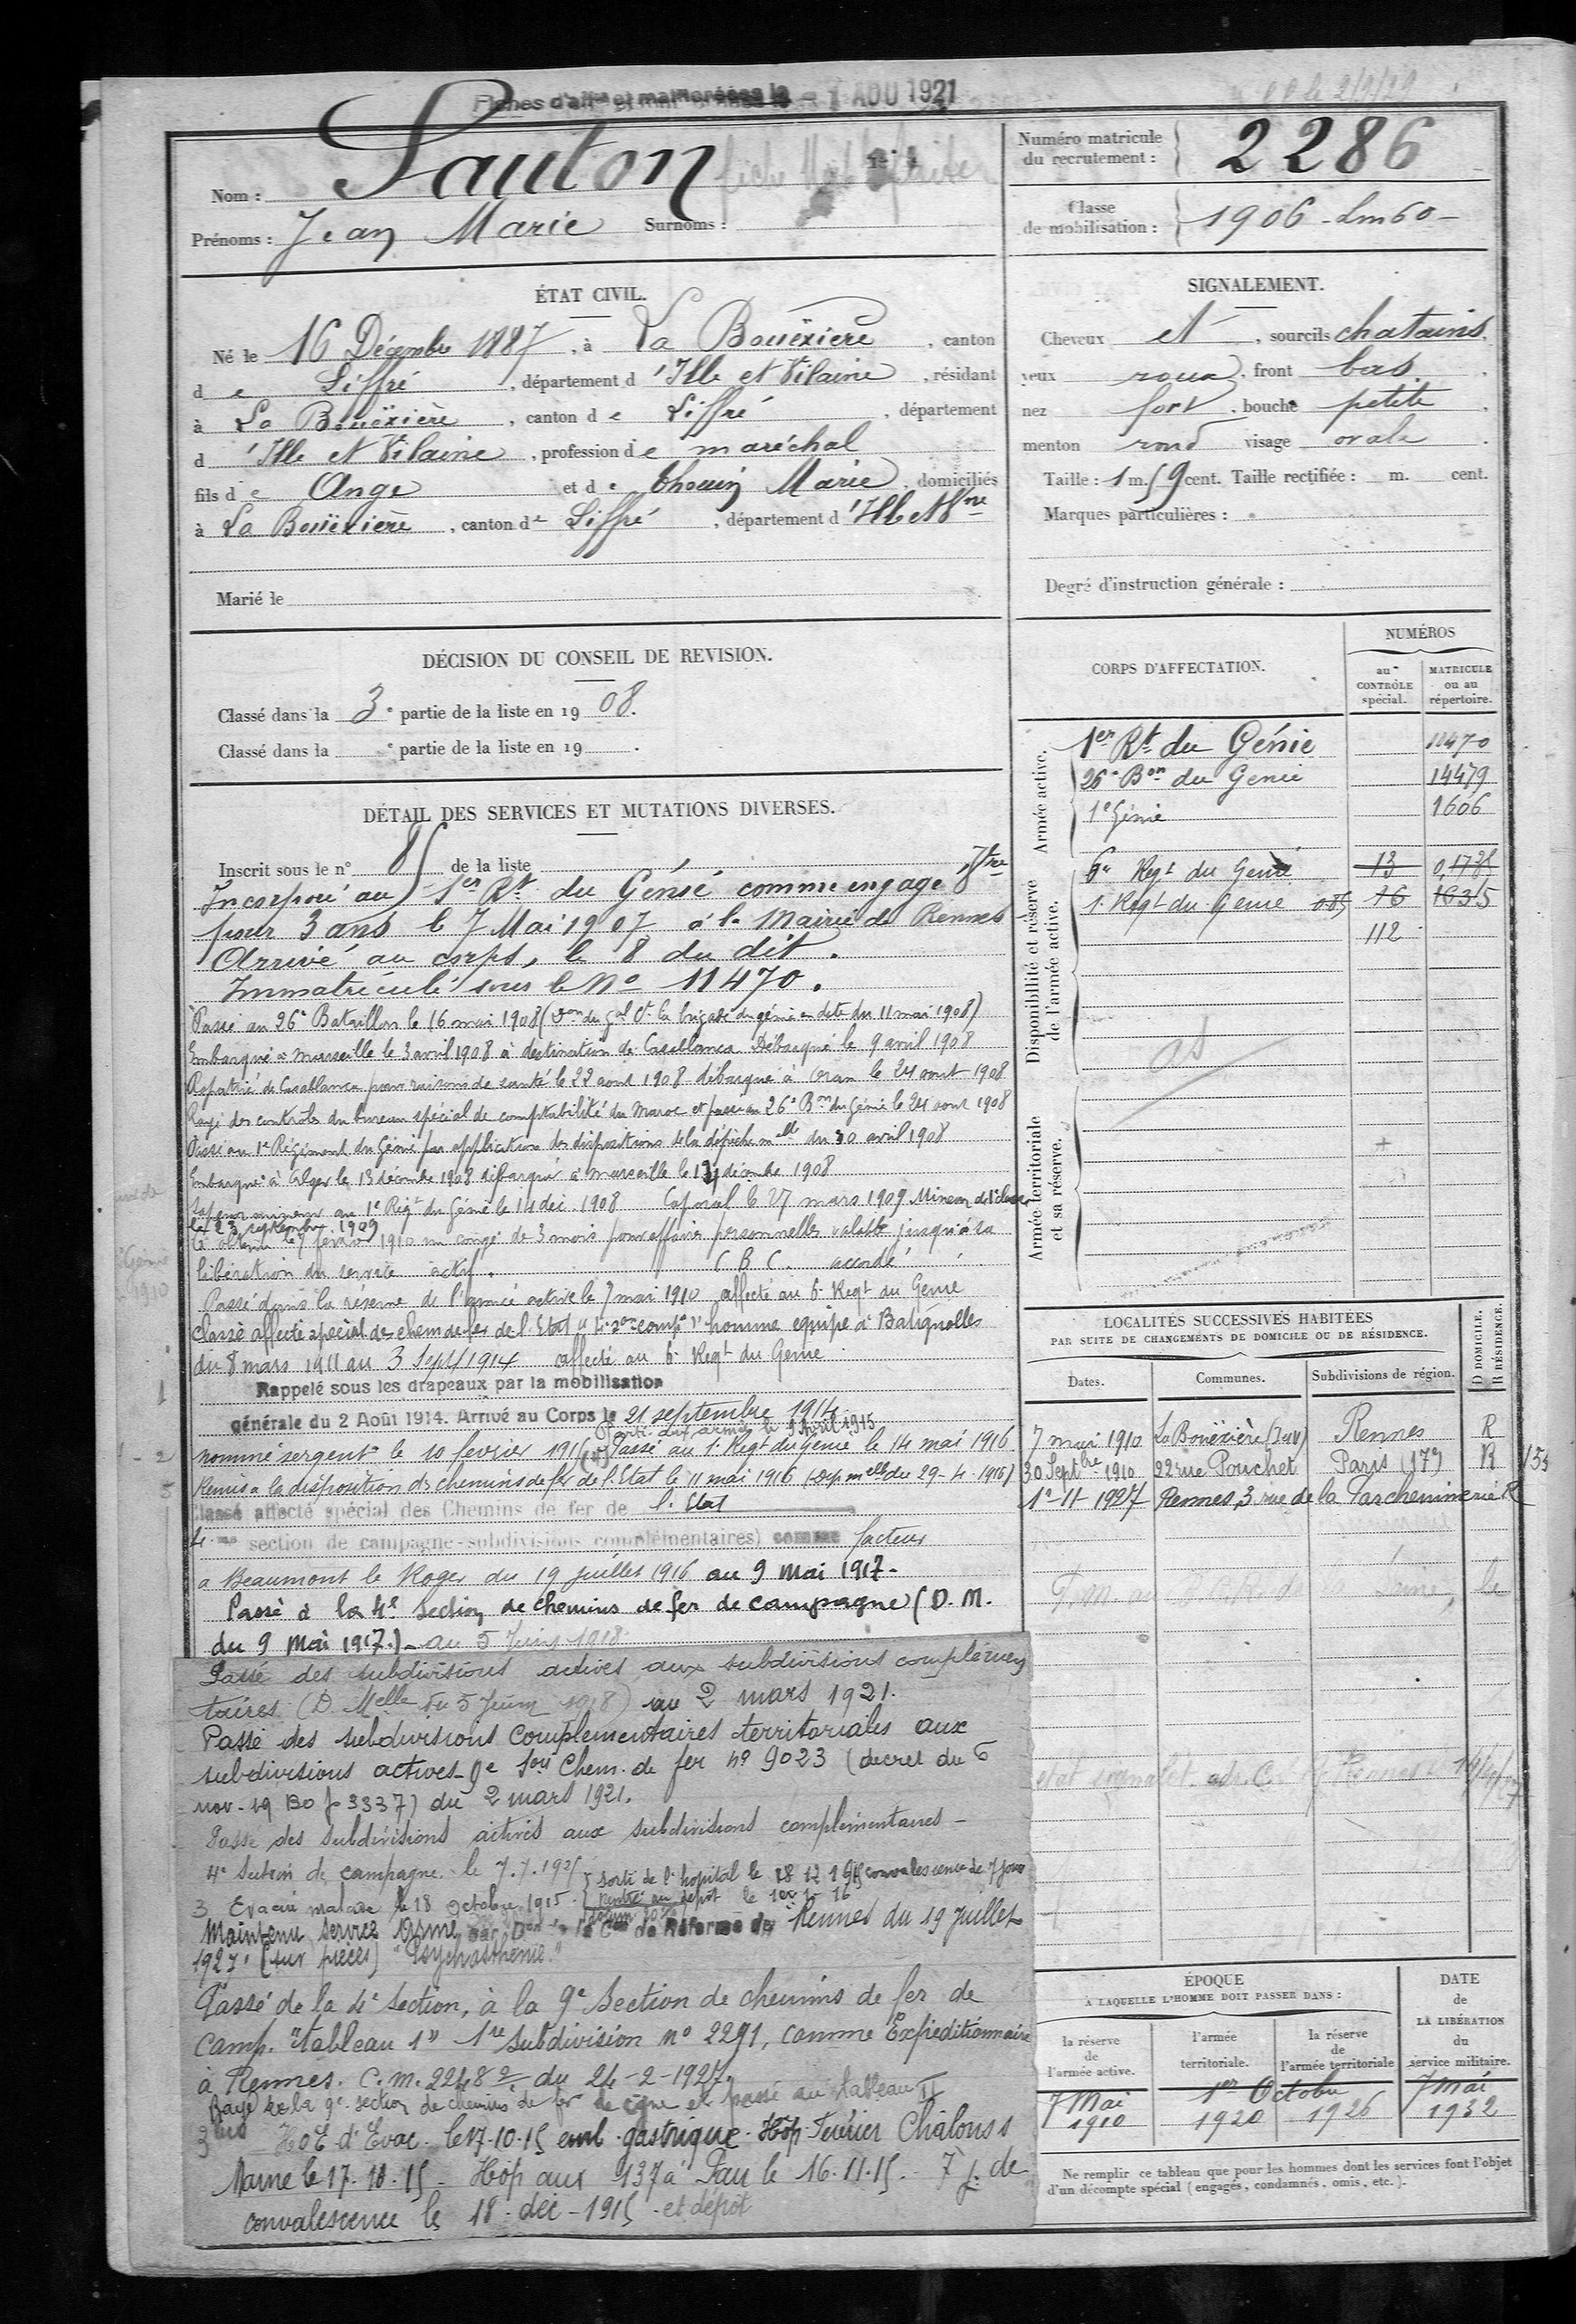 Fiches d'affon et mat créées le - 1 AOU 1921
Nom : Lauton
Prénoms : Jean Marie Surnoms :
Numéro matricule du recrutement : 2286
Classe de mobilisation : 1906 - Lm60 -
ÉTAT CIVIL.
Né le 16 Décembre 1887, à La Bouëxière, canton
de Liffré, département d'Ille et Vilaine, résidant
à La Bouëxière, canton de Liffré, département
d'Ille et Vilaine, profession de maréchal
fils de Ange et de Thouin Marie, domiciliés
à La Bouëxière, canton de Liffré, département d'Ille et Vne
Marié le
SIGNALEMENT.
Cheveux et, sourcils chatains,
yeux roux, front bas,
nez fort, bouche petite,
menton rond visage ovale.
Taille : 1 m. 59 cent. Taille rectifiée : m. cent.
Marques particulières :
Degré d'instruction générale :
DÉCISION DU CONSEIL DE REVISION.
Classé dans la 3e partie de la liste en 1908.
Classé dans la e partie de la liste en 19 .
DÉTAIL DES SERVICES ET MUTATIONS DIVERSES.
Inscrit sous le n° 85 de la liste
Incorporé au 1er Rt du Génie comme engagé Vtre
pour 3 ans le 7 Mai 1907 à la Mairie de Rennes
Arrivé au corps, le 8 du dit.
Immatriculé sous le No 11470.
Passé au 26e Bataillon le 16 mai 1908 (Don du Gal Ct la brigade du génie en date du 11 mai 1908)
Embarqué à Marseille le 3 avril 1908 à destination de Casablanca. Débarqué le 9 avril 1908
Rapatrié de Casablanca pour raisons de santé le 22 aout 1908 débarqué à Oran le 24 aout 1908
Rayé des contrôles du bureau spécial de comptabilité du Maroc et passé au 26e Bon du Génie le 24 aout 1908
Passé au 1er Régiment du Génie par application des dispositions de la dépêche melle du 30 avril 1908
Embarqué à Alger le 13 décembre 1908 débarqué à Marseille le 14 décembre 1908
Sapeur mineur au 1e Régt du Génie le 14 déc. 1908 Caporal le 27 mars 1909 Mineur de 1e classe
le 23 septembre 1909
A obtenu le 7 février 1910 un congé de 3 mois pour affaires personnelles valable jusqu'à sa
libération du service actif. C B C. accordé
Passé dans la réserve de l'armée active le 7 mai 1910 affecté au 6e Regt du Génie
Classé affecté spécial des chem de fer de l'Etat homme équipe à Batignolles
du 8 mars 1911 au 3 Sept 1914 affecté au 6e Regt du Génie
Rappelé sous les drapeaux par la mobilisation
générale du 2 Août 1914. Arrivé au Corps le 21 septembre 1914
Parti aux armées le 9 Avril 1915
nommé sergent le 10 février 1916 Passé au 1e Regt du Génie le 14 mai 1916
Remis à la disposition des chemins de fer de l'Etat le 11 mai 1916 (Dép melle du 29-4-1916)
Classé affecté spécial des Chemins de fer de l'Etat
4me section de campagne-subdivisions complémentaires) comme facteur
à Beaumont le Roger du 19 juillet 1916 au 9 Mai 1917 -
Passé à la 4e Section de chemins de fer de campagne (D. M.
du 9 Mai 1917.) - au 5 Juin 1918
Passé des subdivisions actives aux subdivisions complémen
taires (D. Melle du 5 Juin 1918) au 2 mars 1921.
Passé des subdivisions complementaires territoriales aux
subdivisions actives - 9e Son Chem. de fer no 9023 (decret du 6
nov - 19 BO p 3337) du 2 mars 1921.
Passé des subdivisions actives aux subdivisions complémentaires -
4e Section de campagne. le 7.7.1925
sorti de l'hopital le 18 12 1915 convalescence de 7 jours
3 Evacué malade le 18 Octobre 1915. rentré au dépôt le 1er 1 - 16
Maintenu Service Armé par Don de la Con de Réforme de Rennes du 19 juillet
1927. (sur pièces) "Psychasthénie."
Passé de la 4e Section, à la 9e Section de chemins de fer de
Camp. "tableau 1" 1re Subdivision no 2291, comme Expéditionnaire
à Rennes. C. M. 2248 2/ du 24-2-1927.
Rayé de la 9e section de chemins de fer de cgne et passé au tableau II
3bis HoE d'Evac. le 17.10.15 emb. gastrique. Hop Février Chalons s
Marne le 17.10.15 - Hôp aux 137 à Pau le 16.11.15. - 7 j. de
convalescence le 18 - déc - 1915 - et dépôt
CORPS D'AFFECTATION.
NUMÉROS
au CONTRÔLE spécial.
MATRICULE ou au répertoire.
Armée active.
1er Rt du Génie 11470
26e Bon du Génie 14479
1e Génie 1606
Disponibilité et réserve de l'armée active.
6e Regt du Genie 13 0,1738
1e Regt du Genie 16 1635
112
Armée territoriale et sa réserve.
LOCALITÉS SUCCESSIVES HABITÉES
PAR SUITE DE CHANGEMENTS DE DOMICILE OU DE RÉSIDENCE.
Dates. Communes. Subdivisions de région. D DOMICILE. R RÉSIDENCE.
7 mai 1910 La Bouëxière (I&V) Rennes R
30 Septbre 1910 22 rue Pouchet Paris (17e) R
1e-11-1927 Rennes, 3 rue de la Parcheminerie R
ÉPOQUE
À LAQUELLE L'HOMME DOIT PASSER DANS :
la réserve de l'armée active.
l'armée territoriale.
la réserve de l'armée territoriale
DATE de LA LIBÉRATION du service militaire.
7 Mai 1910
1er Octobre 1920 1926
7 Mai 1932
Ne remplir ce tableau que pour les hommes dont les services font l'objet
d'un décompte spécial (engagés, condamnés, omis, etc.).